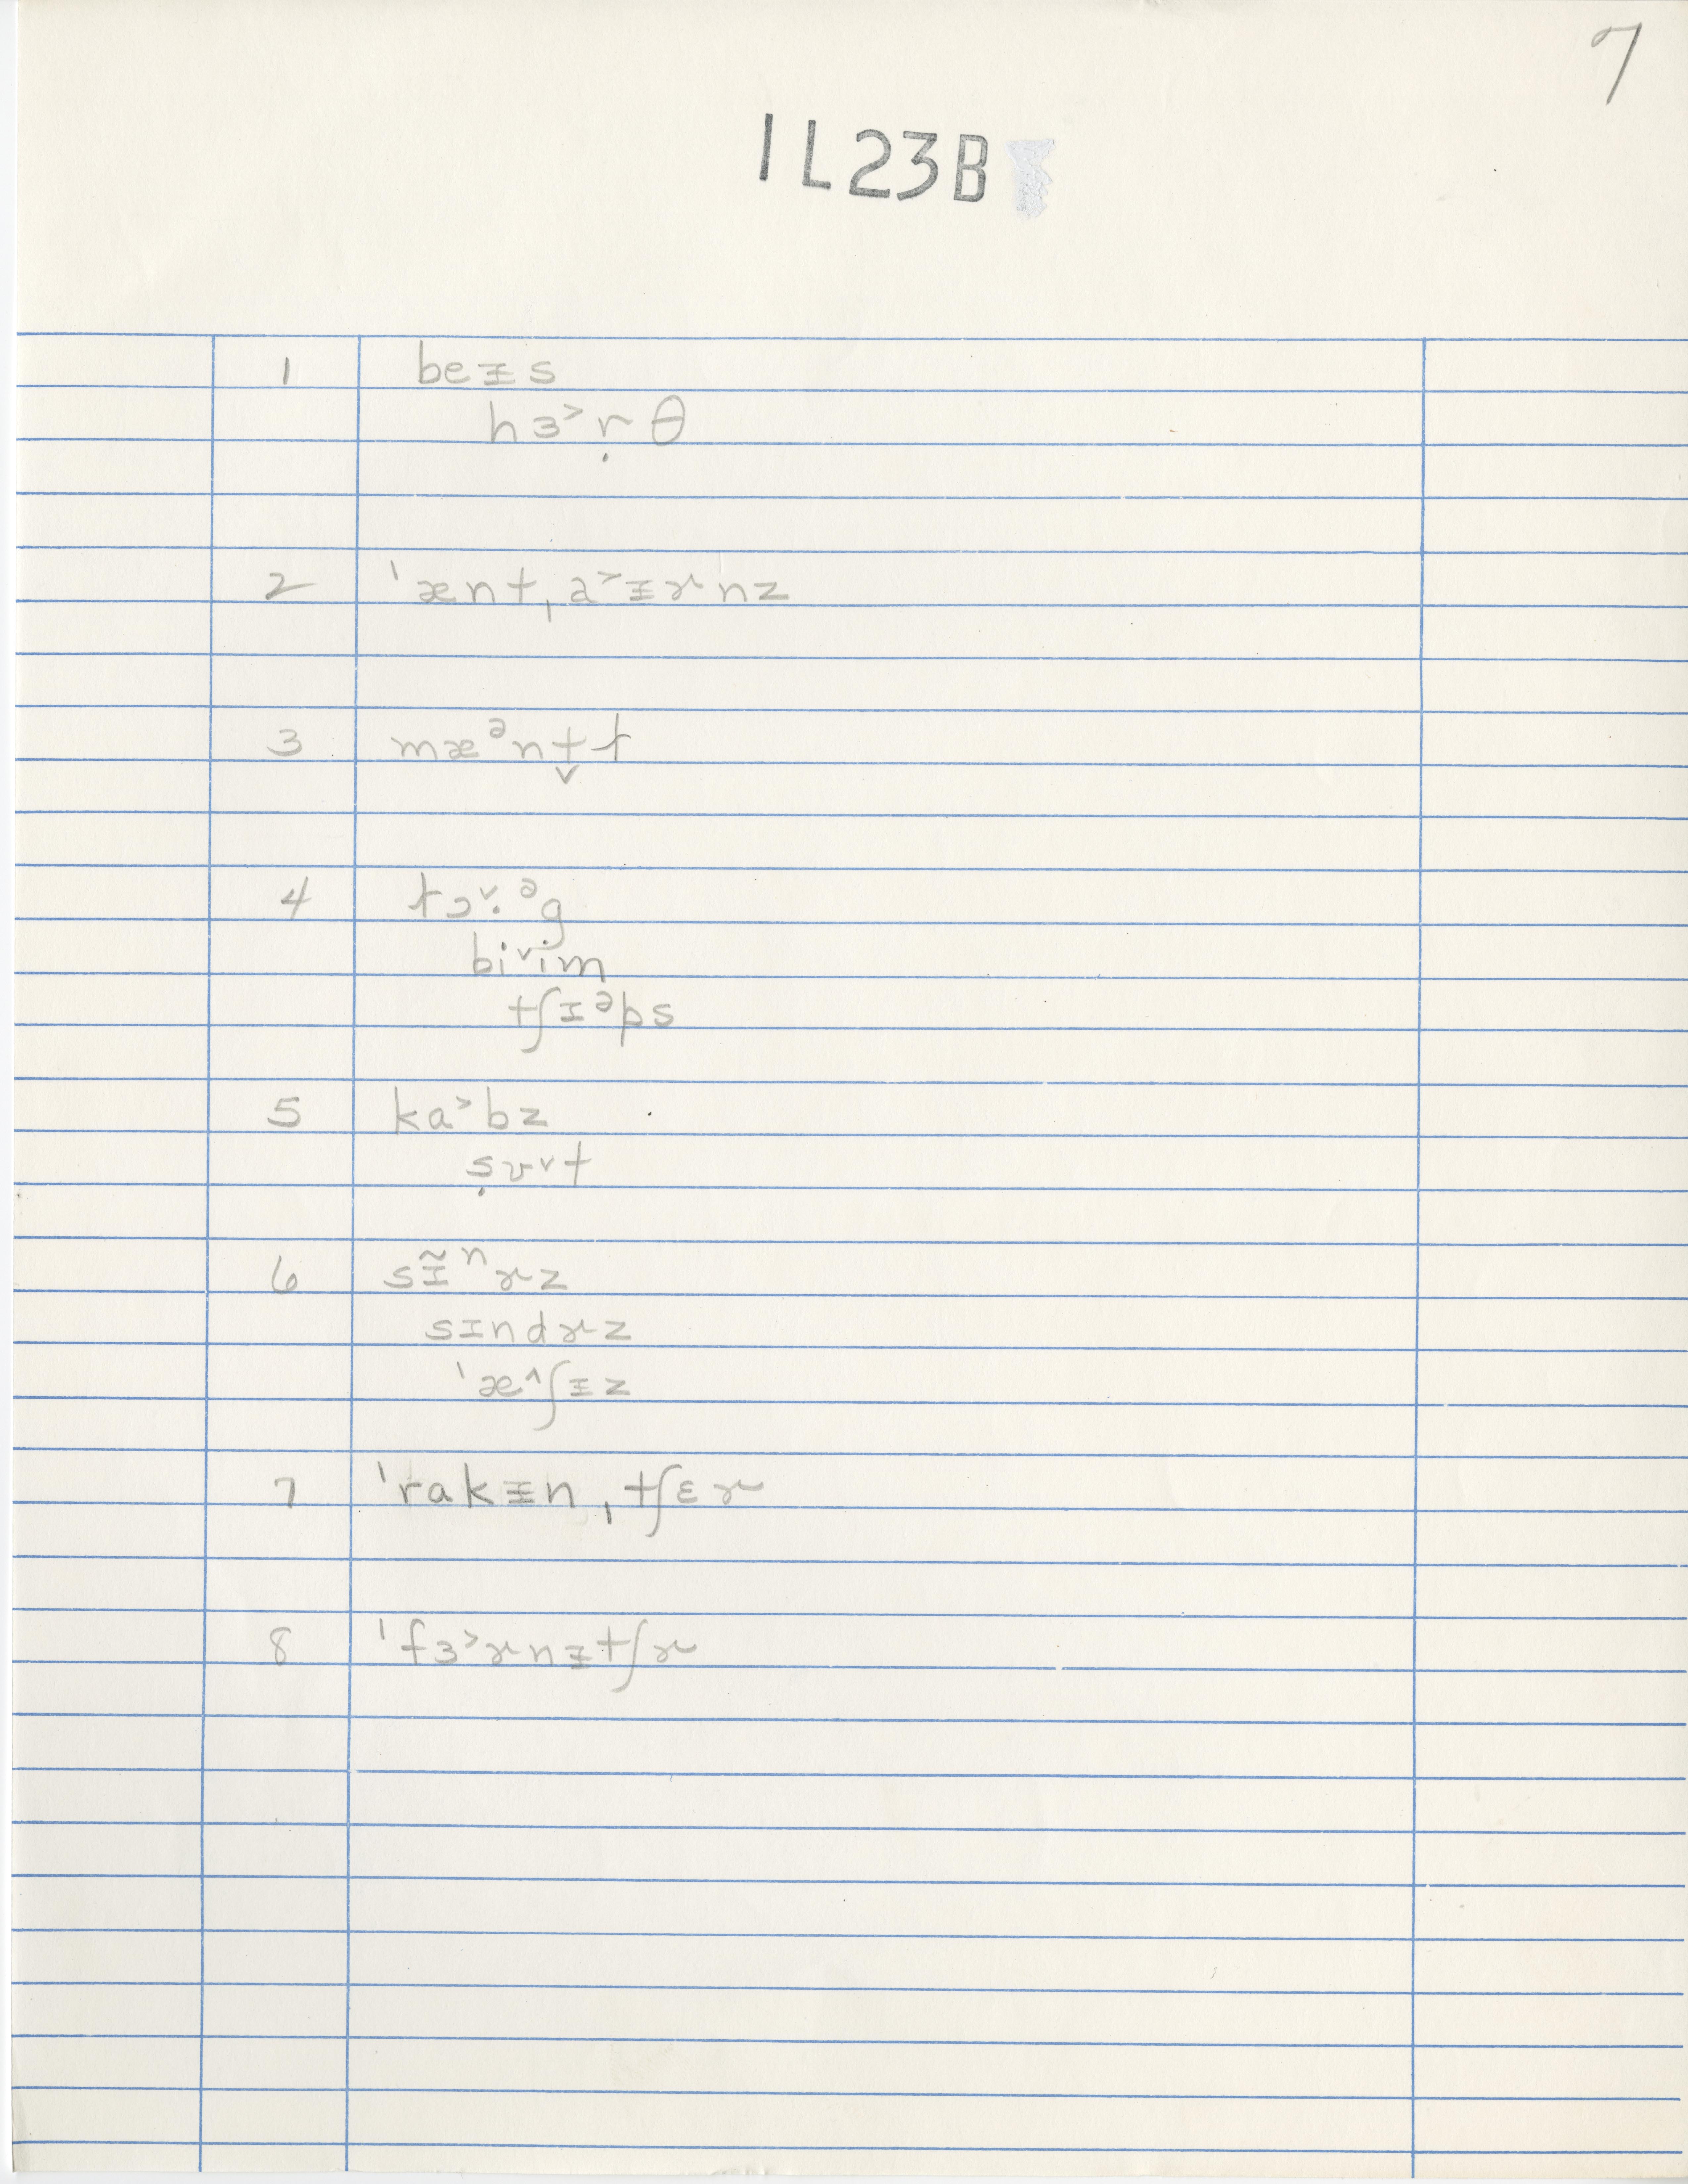 7
IL23B
1 beᵻs
hɜ˃ṛθ
2 ˈænt,a˃ᵻɚnz
3 mæᵊnt̬ɫ
4 ɫɔ˅·ᵊg
bi˅im
tʃɪᵊps
5 ka˃bz
ṣʊ˅t
6 sɪ̴̃ⁿɚz
sɪndɚz
ˈæ˄ʃᵻz
7 ˈrakᵻnˌtʃɛɚ
8 ˈfɜ˃ɚnᵻtʃɚ